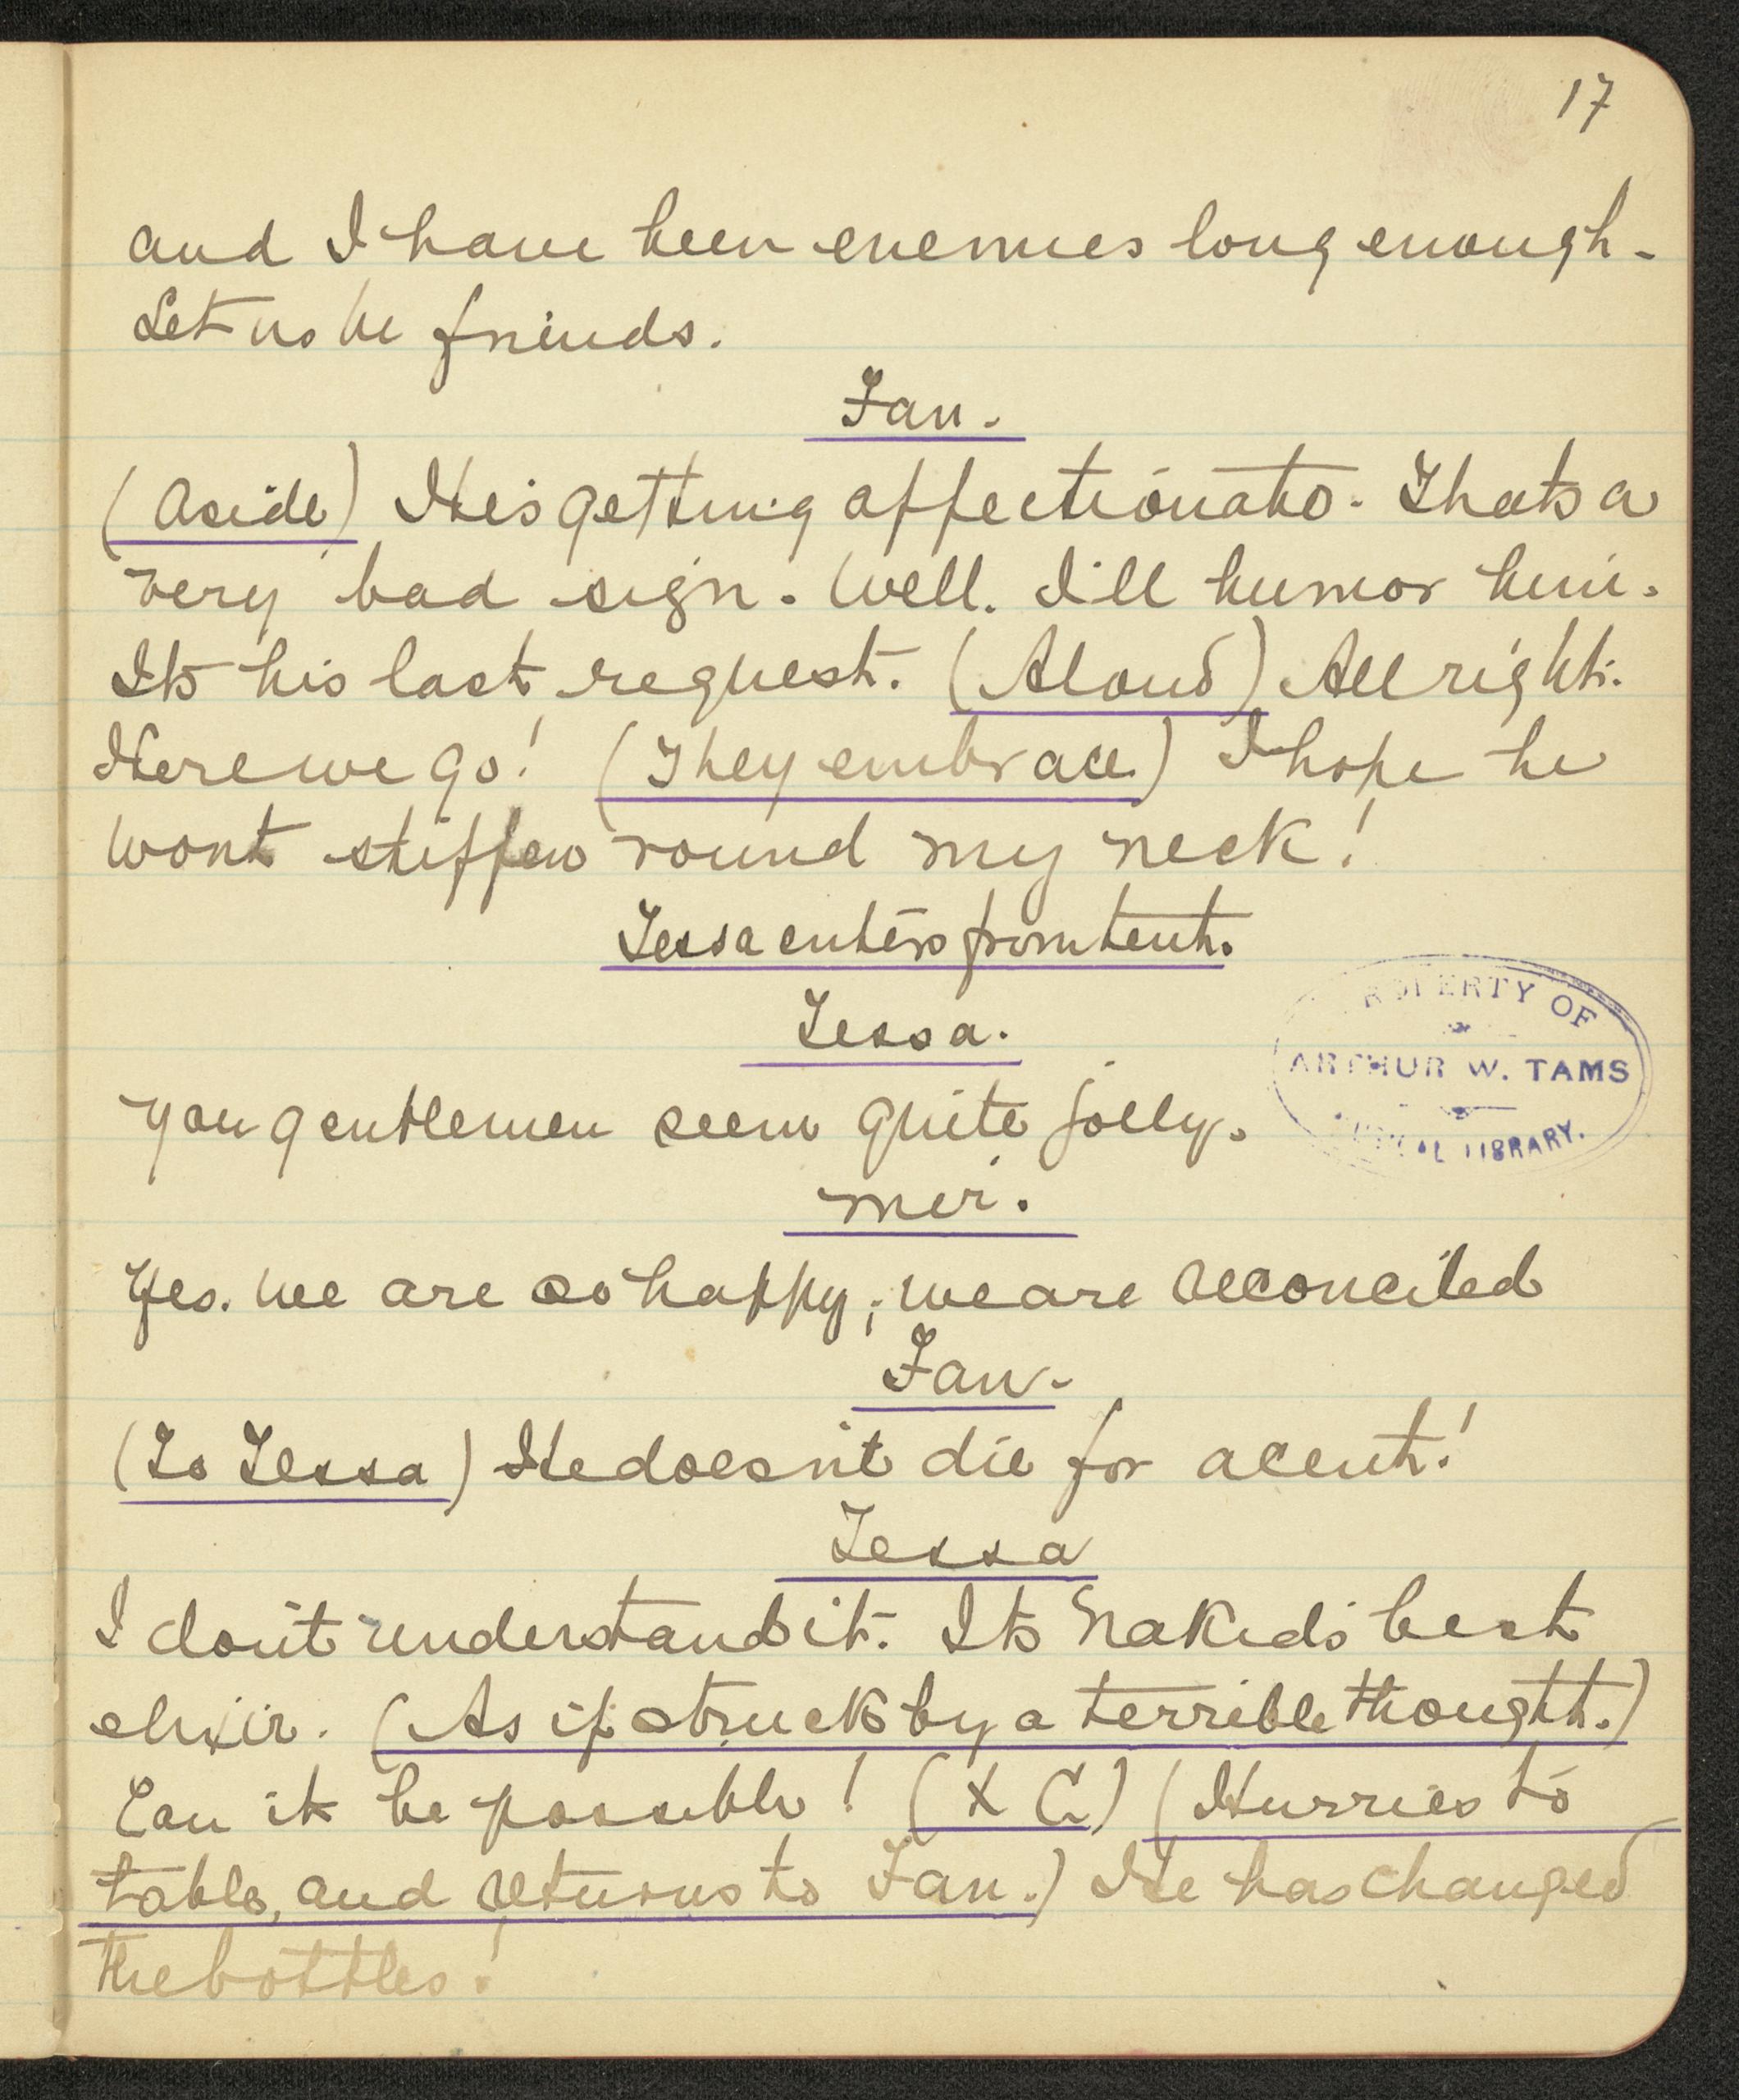 17
and I have been enemies long enough.
Let us be friends.
Fan.
(Aside) He's getting affectionate. Thats a
very bad sign. Well. I'll humor him.
Its his last request. (Aloud) All right.
Here we go! (They embrace) I hope he
wont stiffen round my neck!
Tessa enters from tent.
Tessa.
PROPERTY OF
ARTHUR W. TAMS
LIBRARY.
You gentlemen seem quite jolly.
Mer.
Yes. We are so happy; we are reconciled
Fan.
(To Tessa) He doesn't die for a cent!
Tessa
I don't understand it. Its Nakid's best
elixir. (As if struck by a terrible thought.)
Can it be possible! (X C) (Hurries to
table, and returns to Fan.) He has changed
the bottles!